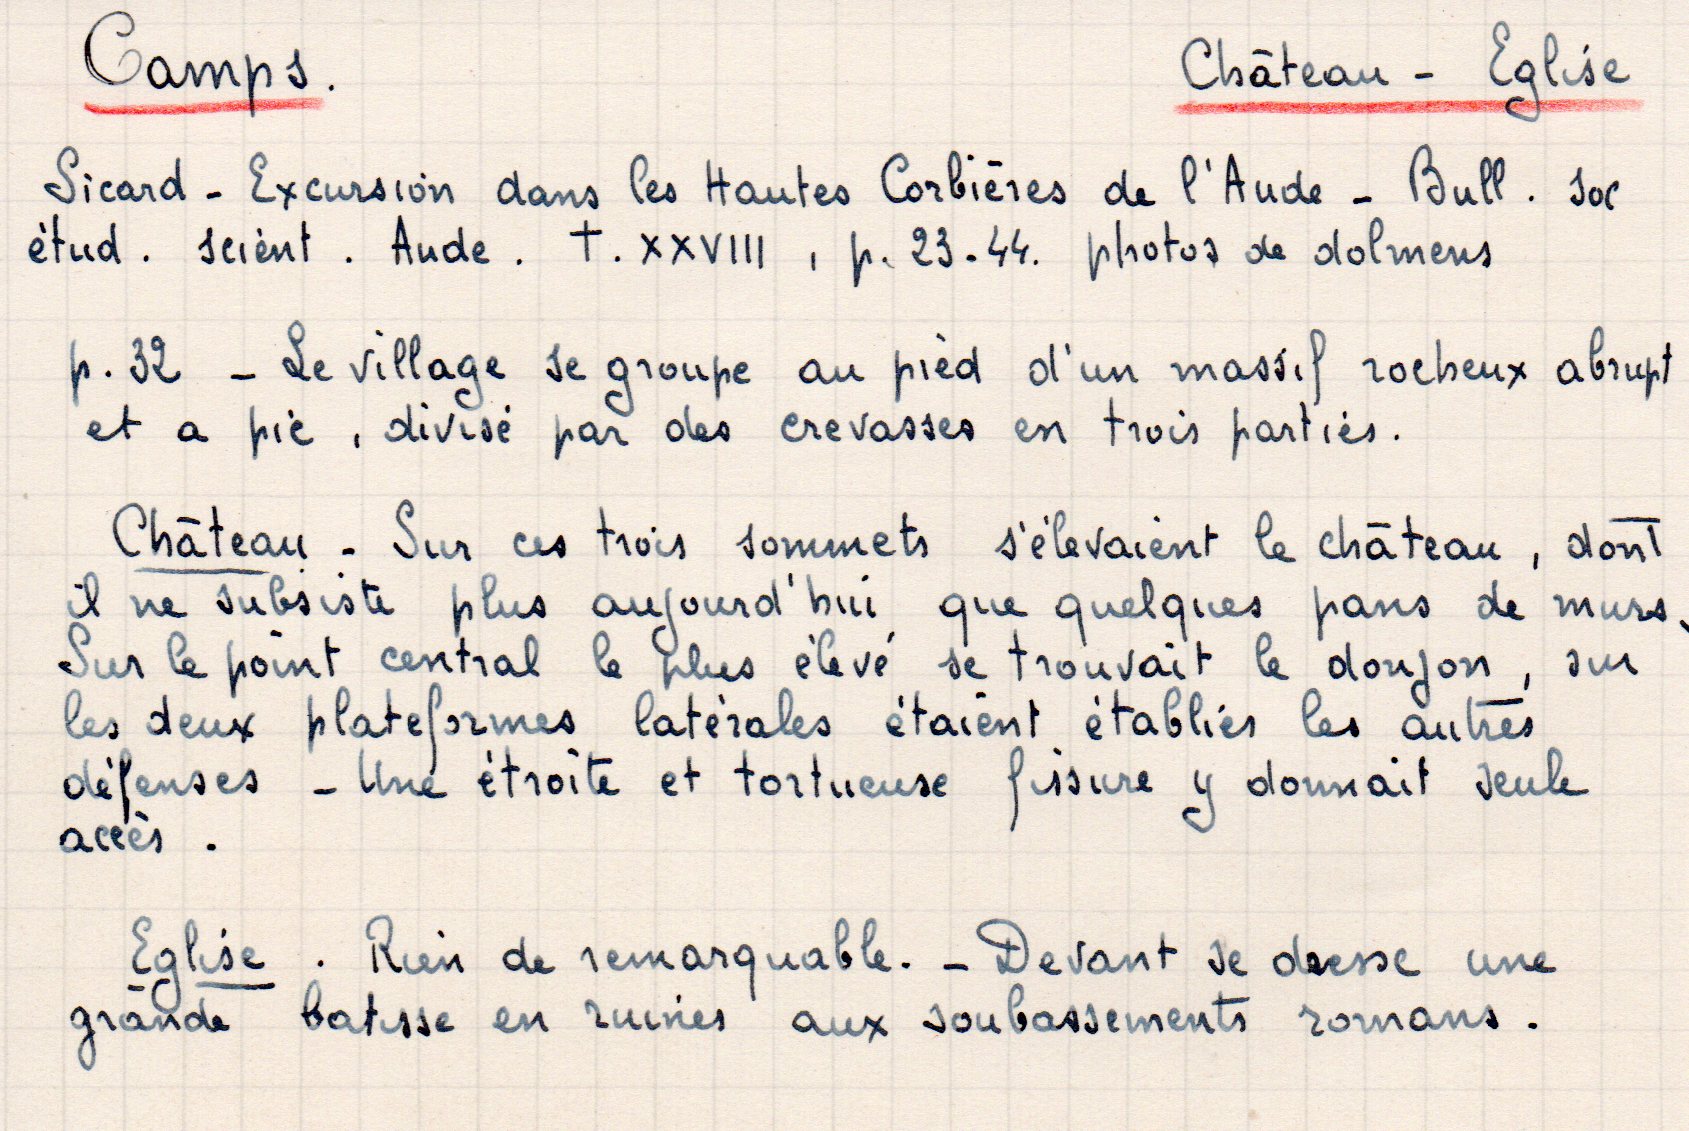 Camps. Château - Eglise
Sicard - Excursion dans les Hautes Corbières de l'Aude - Bull. soc
étud. scient. Aude. T. XXVIII, p. 23-44. photos de dolmens
p. 32 - Le village se groupe au pied d'un massif rocheux abrupt
et a pic, divisé par des crevasses en trois parties.
Château - Sur ces trois sommets s'élevaient le château, dont
il ne subsiste plus aujourd'hui que quelques pans de murs.
Sur le point central le plus élevé se trouvait le donjon, sur
les deux plateformes latérales étaient établies les autres
défenses - Une étroite et tortueuse fissure y donnait seule
accès.
Eglise. Rien de remarquable. - Devant se dresse une
grande batisse en ruines aux soubassements romans.